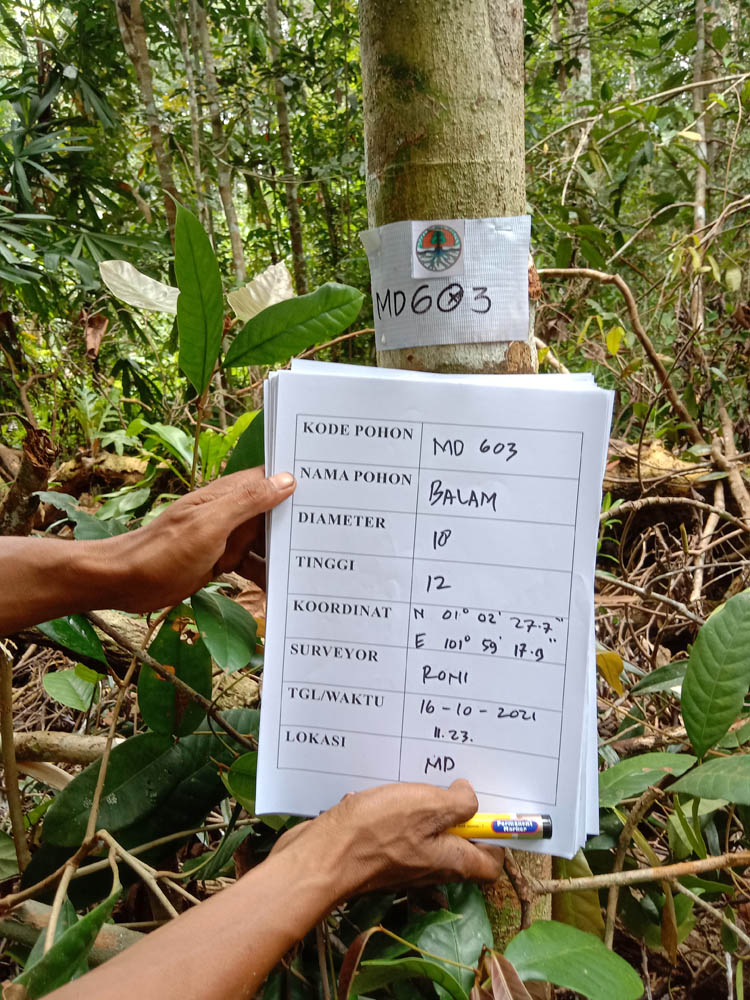 MD603
KODE POHON MD 603
NAMA POHON BALAM
DIAMETER 18
TINGGI 12
KOORDINAT N 01° 02' 27.7"
E 101° 59' 17.9"
SURVEYOR RONI
TGL/WAKTU 16-10-2021
11.23.
LOKASI MD
Permanent
Marker